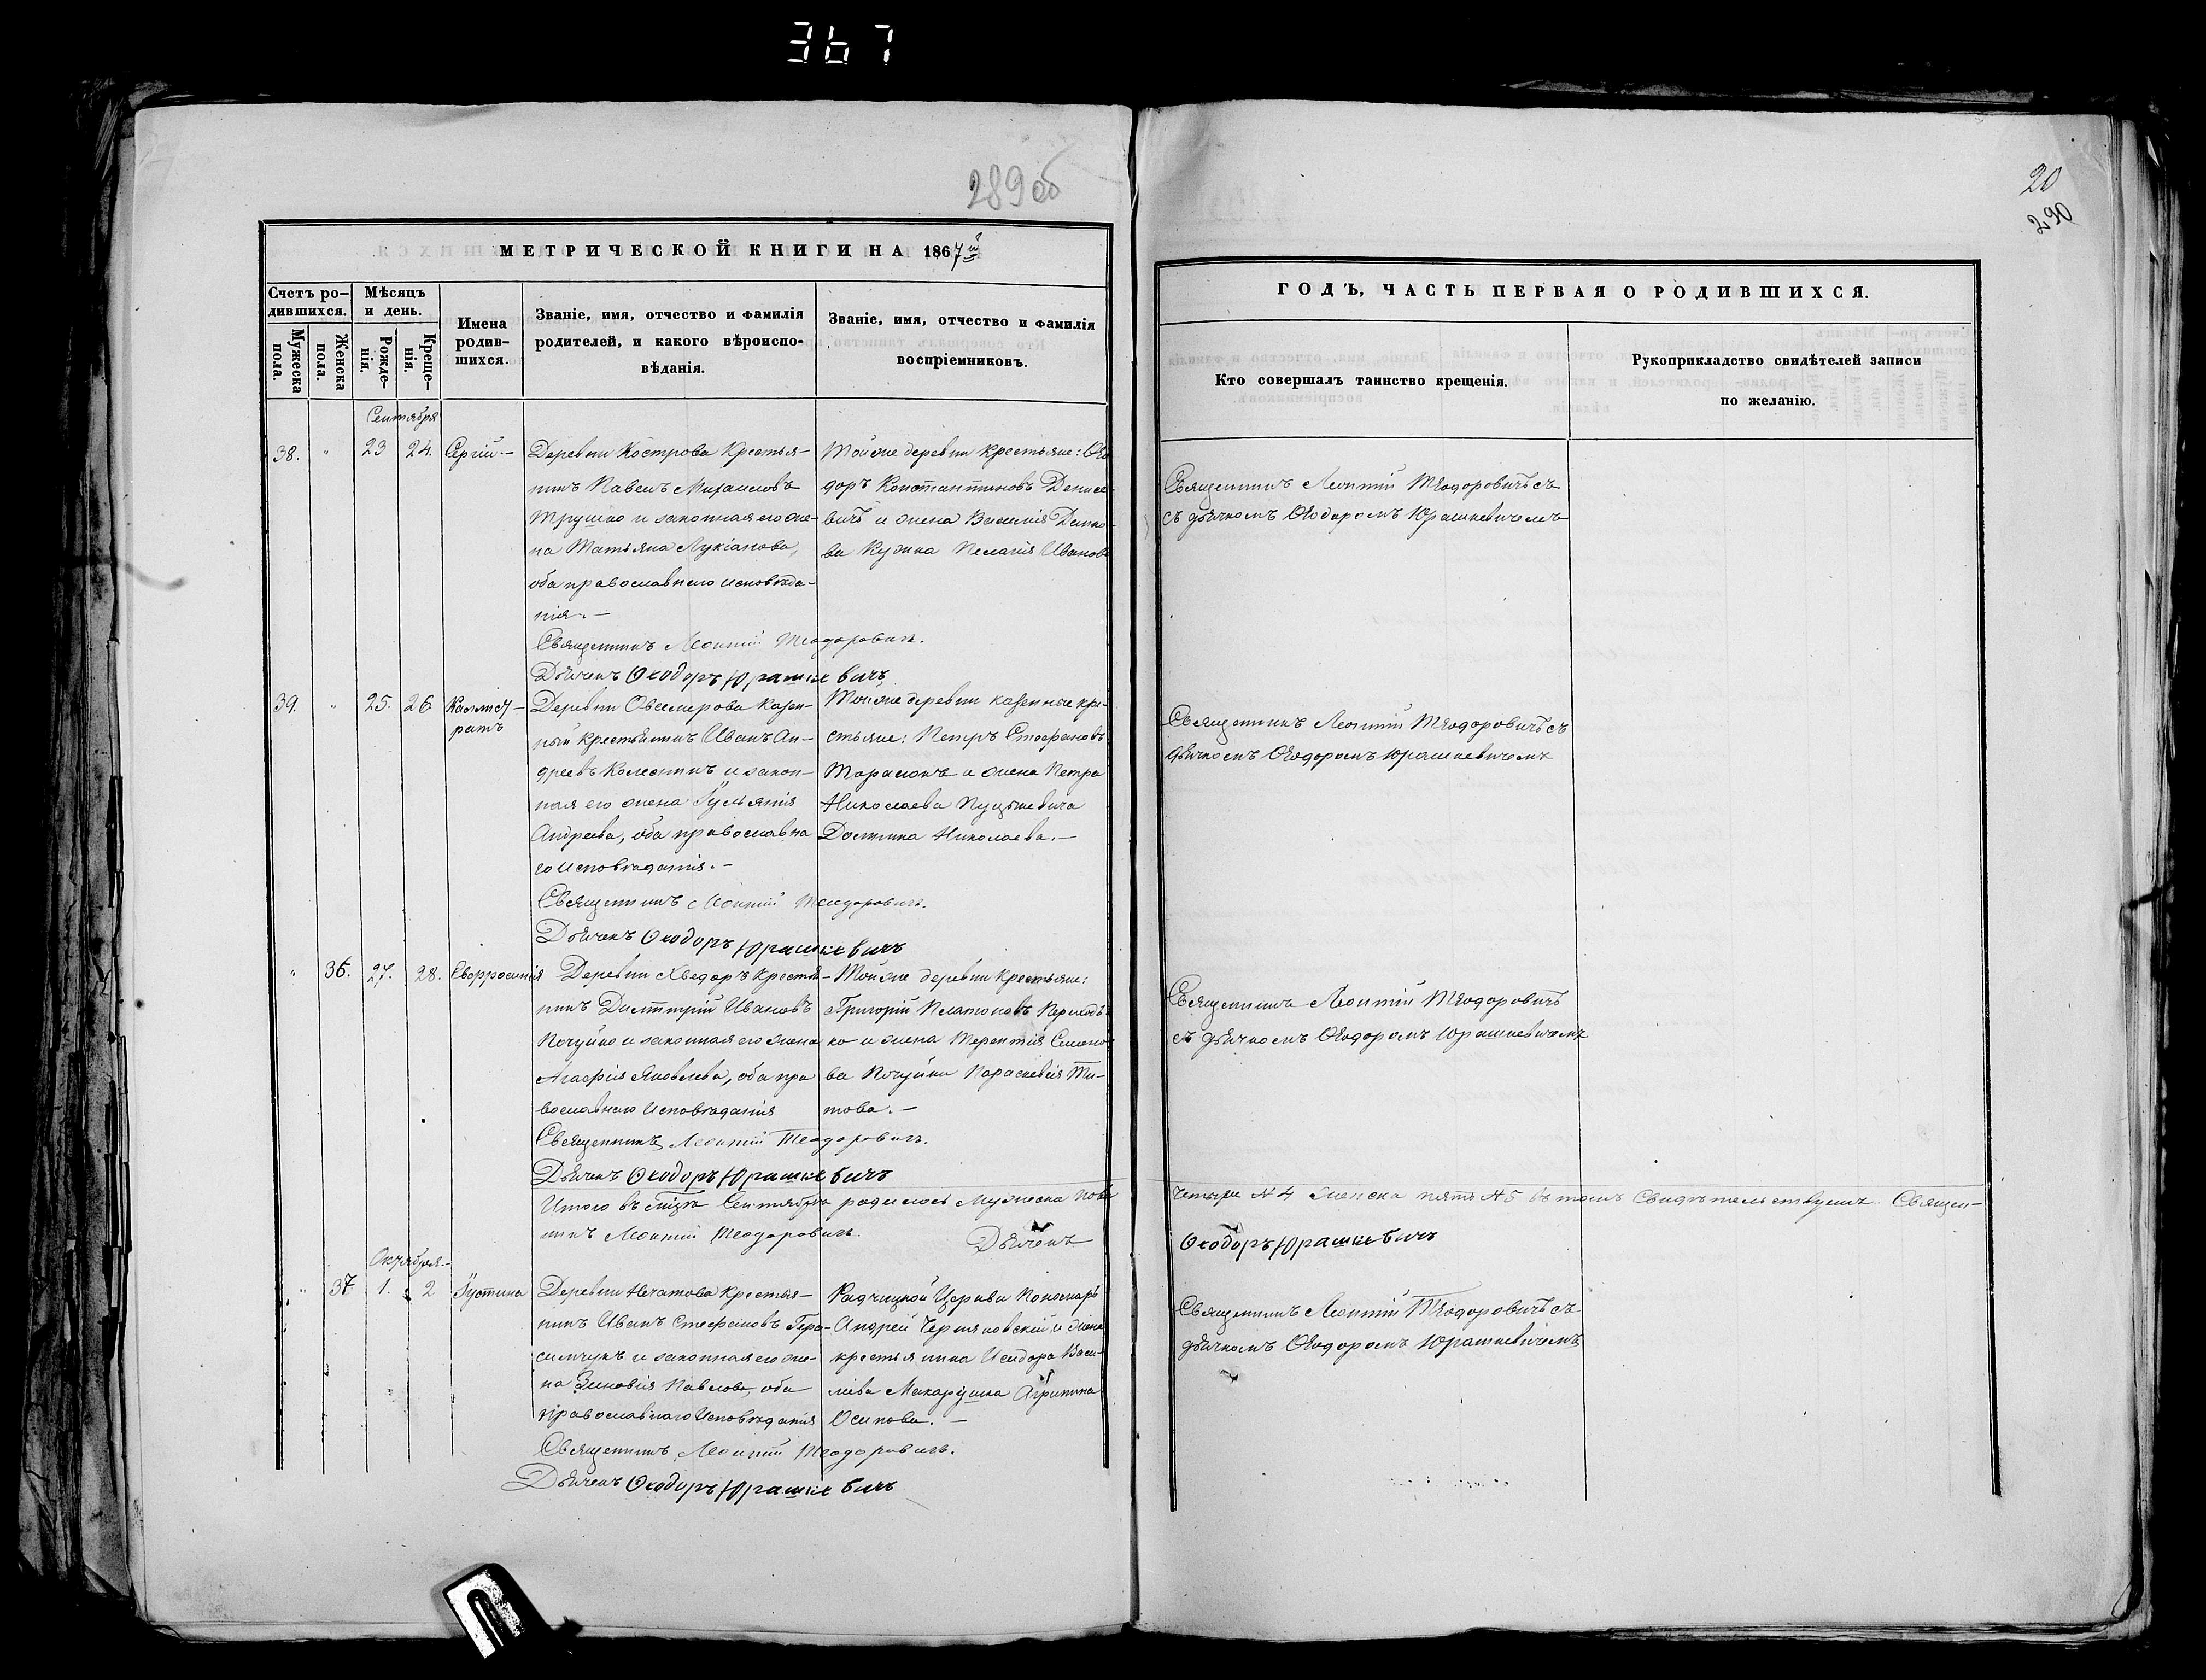 367
289 об
20
290
МЕТРИЧЕСКОЙ КНИГИ НА 1867й
Счетъ ро-
дившихся.
Мужеска
пола.
Женска
пола.
Мѣсяцъ
и день.
Рожде-
нія.
Креще-
нія.
Имена
родив-
шихся.
Званіе, имя, отчество и фамилія
родителей, и какого вѣроиспо-
вѣданія.
Званіе, имя, отчество и фамилія
воспріемниковъ.
ГОДЪ, ЧАСТЬ ПЕРВАЯ О РОДИВШИХСЯ.
Кто совершалъ таинство крещенія.
Рукоприкладство свидѣтелей записи
по желанію.
Сентября
38. " 23 24. Сергій.-
Деревни Кострова Крестья-
нинъ Павелъ Михаиловъ
Трушко и законная его же-
на Татьяна Лукіанова,
оба православнаго исповѣда-
нія.-
Священникъ Леонтій Теодоровичъ.
Дьячекъ Ѳеодоръ Юрашкевичъ
Тойже деревни крестьяне: Ѳео
доръ Константиновъ Денисе-
вичъ и жена Василія
Пелагія Иванова
Священникъ Леонтій Ѳеодоровичъ съ
съ дьячкомъ Ѳеодоромъ Юрашкевичемъ
39. " 25. 26 Каллист-
ратъ
Деревни Овсемерова Казен-
ный крестьянинъ Иванъ Ан-
дреевъ и закон-
ная его жена Іуліянія
Андреева, оба православна
го исповѣданія.-
Священникъ Леонтій Теодоровичъ.
Дьячекъ Ѳеодоръ Юрашкевичъ
Тойже деревни казенные кре-
стьяне: Петръ Стефановъ
и жена Петра
Николаева
Николаева.-
Священникъ Леонтій Ѳеодоровичъ съ
дьячкомъ Ѳеодоромъ Юрашкевичемъ
" 36. 27. 28. Евфросинія
Деревни Хведоръ Крестья-
нинъ Димитрій Ивановъ
Почуйко и законная его жена
Агафія Яковлева, оба пра
вославнаго исповѣданія
Священникъ Леонтій Теодоровичъ.
Дьячекъ Ѳеодоръ Юрашкевичъ
Тойже деревни крестьяне:
Григорій Платоновъ Переходь-
ко и жена Терентія Семено
ва Почуйки Параскевія Ти-
това.-
Священникъ Леонтій Ѳеодоровичъ
съ дьячкомъ Ѳеодоромъ Юрашкевичемъ
Итого въ м-цѣ Сентябрѣ родилось мужеска пола
четыре № 4 женска пять № 5 въ томъ свидѣтельствуемъ Священ-
никъ Леонтій Теодоровичъ. Дьячекъ
Ѳеодоръ Юрашкевичъ
Октября.-
" 37 1. 2 Іустина
Деревни Нечатова Крестья-
нинъ Иванъ Стефановъ Гера-
симчукъ и законная его же-
на Зиновія Павлова, оба
православнаго исповѣданія
Священникъ Леонтій Теодоровичъ.
Дьячекъ Ѳеодоръ Юрашкевичъ
Радчицкой Церкви Пономарь
Андрей Черняковскій и жена
крестьянина Исидора Васи-
лiева Макарушка Агрипина
Осипова.-
Священникъ Леонтій Ѳеодоровичъ съ
дьячкомъ Ѳеодоромъ Юрашкевичемъ